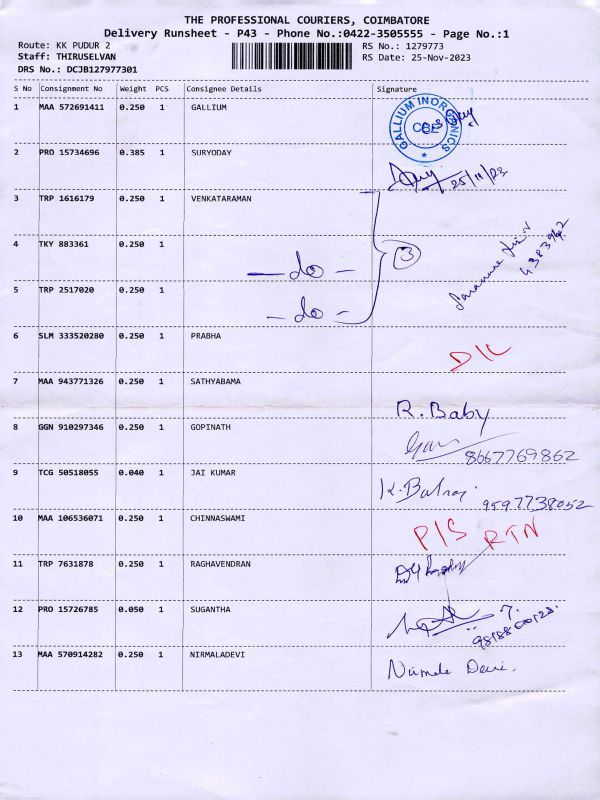 THE PROFESSIONAL COURIERS, COIMBATORE
Delivery Runsheet - P43 - Phone No.:0422-3505555 - Page No.:1
Route: KK PUDUR 2 RS No.: 1279773
Staff: THIRUSELVAN RS Date: 25-Nov-2023
DRS No.: DCJB127977301
S No Consignment No Weight PCS Consignee Details Signature
1 MAA 572691411 0.250 1 GALLIUM
GALLIUM INORGANICS
CBE
2 PRO 15734696 0.385 1 SURYODAY
25/11/23
3 TRP 1616179 0.250 1 VENKATARAMAN
4 TKY 883361 0.250 1
- do - 3
5 TRP 2517020 0.250 1
- do -
6 SLM 333520280 0.250 1 PRABHA
D/L
7 MAA 943771326 0.250 1 SATHYABAMA
R. Baby
8 GGN 910297346 0.250 1 GOPINATH
8667769862
9 TCG 50518055 0.040 1 JAI KUMAR
9597738052
10 MAA 106536071 0.250 1 CHINNASWAMI
P/S RTN
11 TRP 7631878 0.250 1 RAGHAVENDRAN
12 PRO 15726785 0.050 1 SUGANTHA
13 MAA 570914282 0.250 1 NIRMALADEVI
Nirmala Devi.